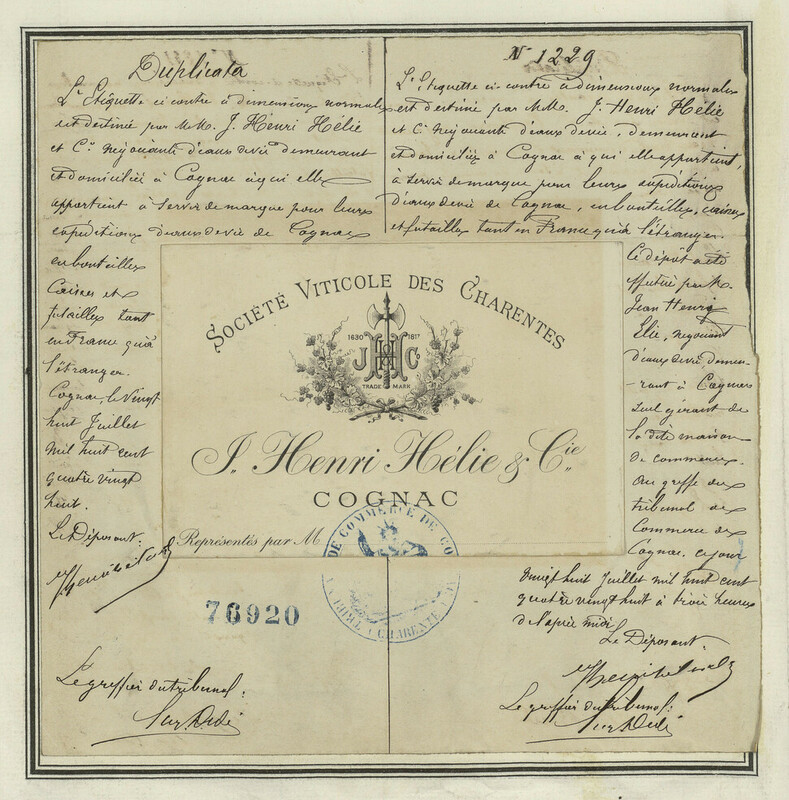 Duplicata
L'Etiquette ci contre à dimensions normales
est destinée par M.M. J. Henri Hélie
et Cie Négociants d'eaux de vie demeurant
et domiciliés à Cognac à qui elle
appartient à servir de marque pour leurs
expéditions d'eaux de vie de Cognac
en bouteilles
Caisses et
futailles tant
en France qu'à
l'étranger.
Cognac, le Vingt
huit Juillet
mil huit cent
quatre vingt
huit.
Le Déposant:
76920
Le greffier du tribunal:
No 1229
L'Etiquette ci-contre à dimensions normales
est destinée par M.M. J. Henri Hélie
et Cie Négociants d'eaux de vie, demeurant
et domiciliés à Cognac à qui elle appartient,
à servir de marque pour leurs expéditions
d'eaux de vie de Cognac, en bouteilles, caisses
et futailles tant en France qu'à l'étranger.
Ce dépôt a été
effectué par M.
Jean Henri
Elie, négociant
d'eaux de vie, demeu-
-rant à Cognac
seul gérant de
la dite maison
de commerce.
Au greffe du
tribunal de
Commerce de
Cognac. ce jour
vingt huit Juillet mil huit cent
quatre vingt huit à trois heures
de l'après midi
Le Déposant:
Le greffier du tribunal:
SOCIÉTÉ VITICOLE DES CHARENTES
1630 1817
J H Co
TRADE MARK
J. Henri Hélie & Cie
COGNAC
Représentés par M
DE COMMERCE DE CO
CHARENTE